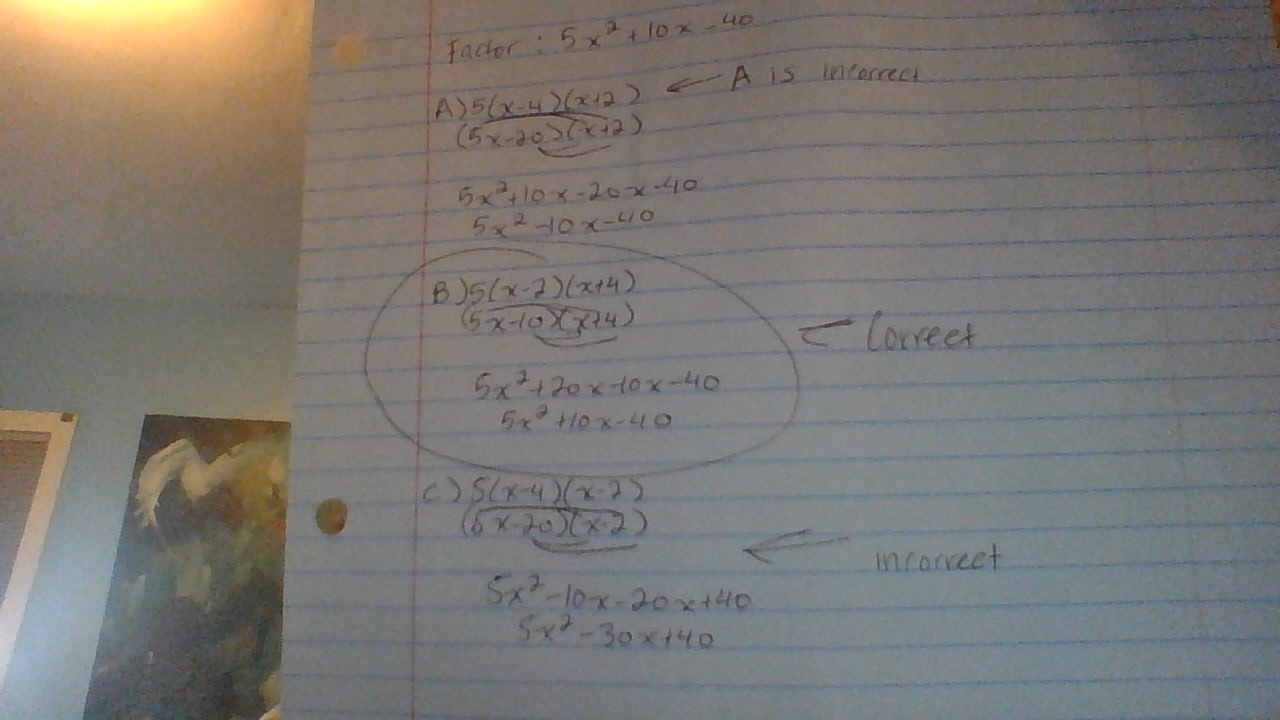 Factor: 5x² + 10x - 40
A) 5(x-4)(x+2) ← A is incorrect
(5x-20)(x+2)
5x²+10x-20x-40
5x²-10x-40
B) 5(x-2)(x+4)
(5x-10)(x+4) ← Correct
5x²+20x-10x-40
5x²+10x-40
C) 5(x-4)(x-2)
(5x-20)(x-2)
← incorrect
5x²-10x-20x+40
5x²-30x+40